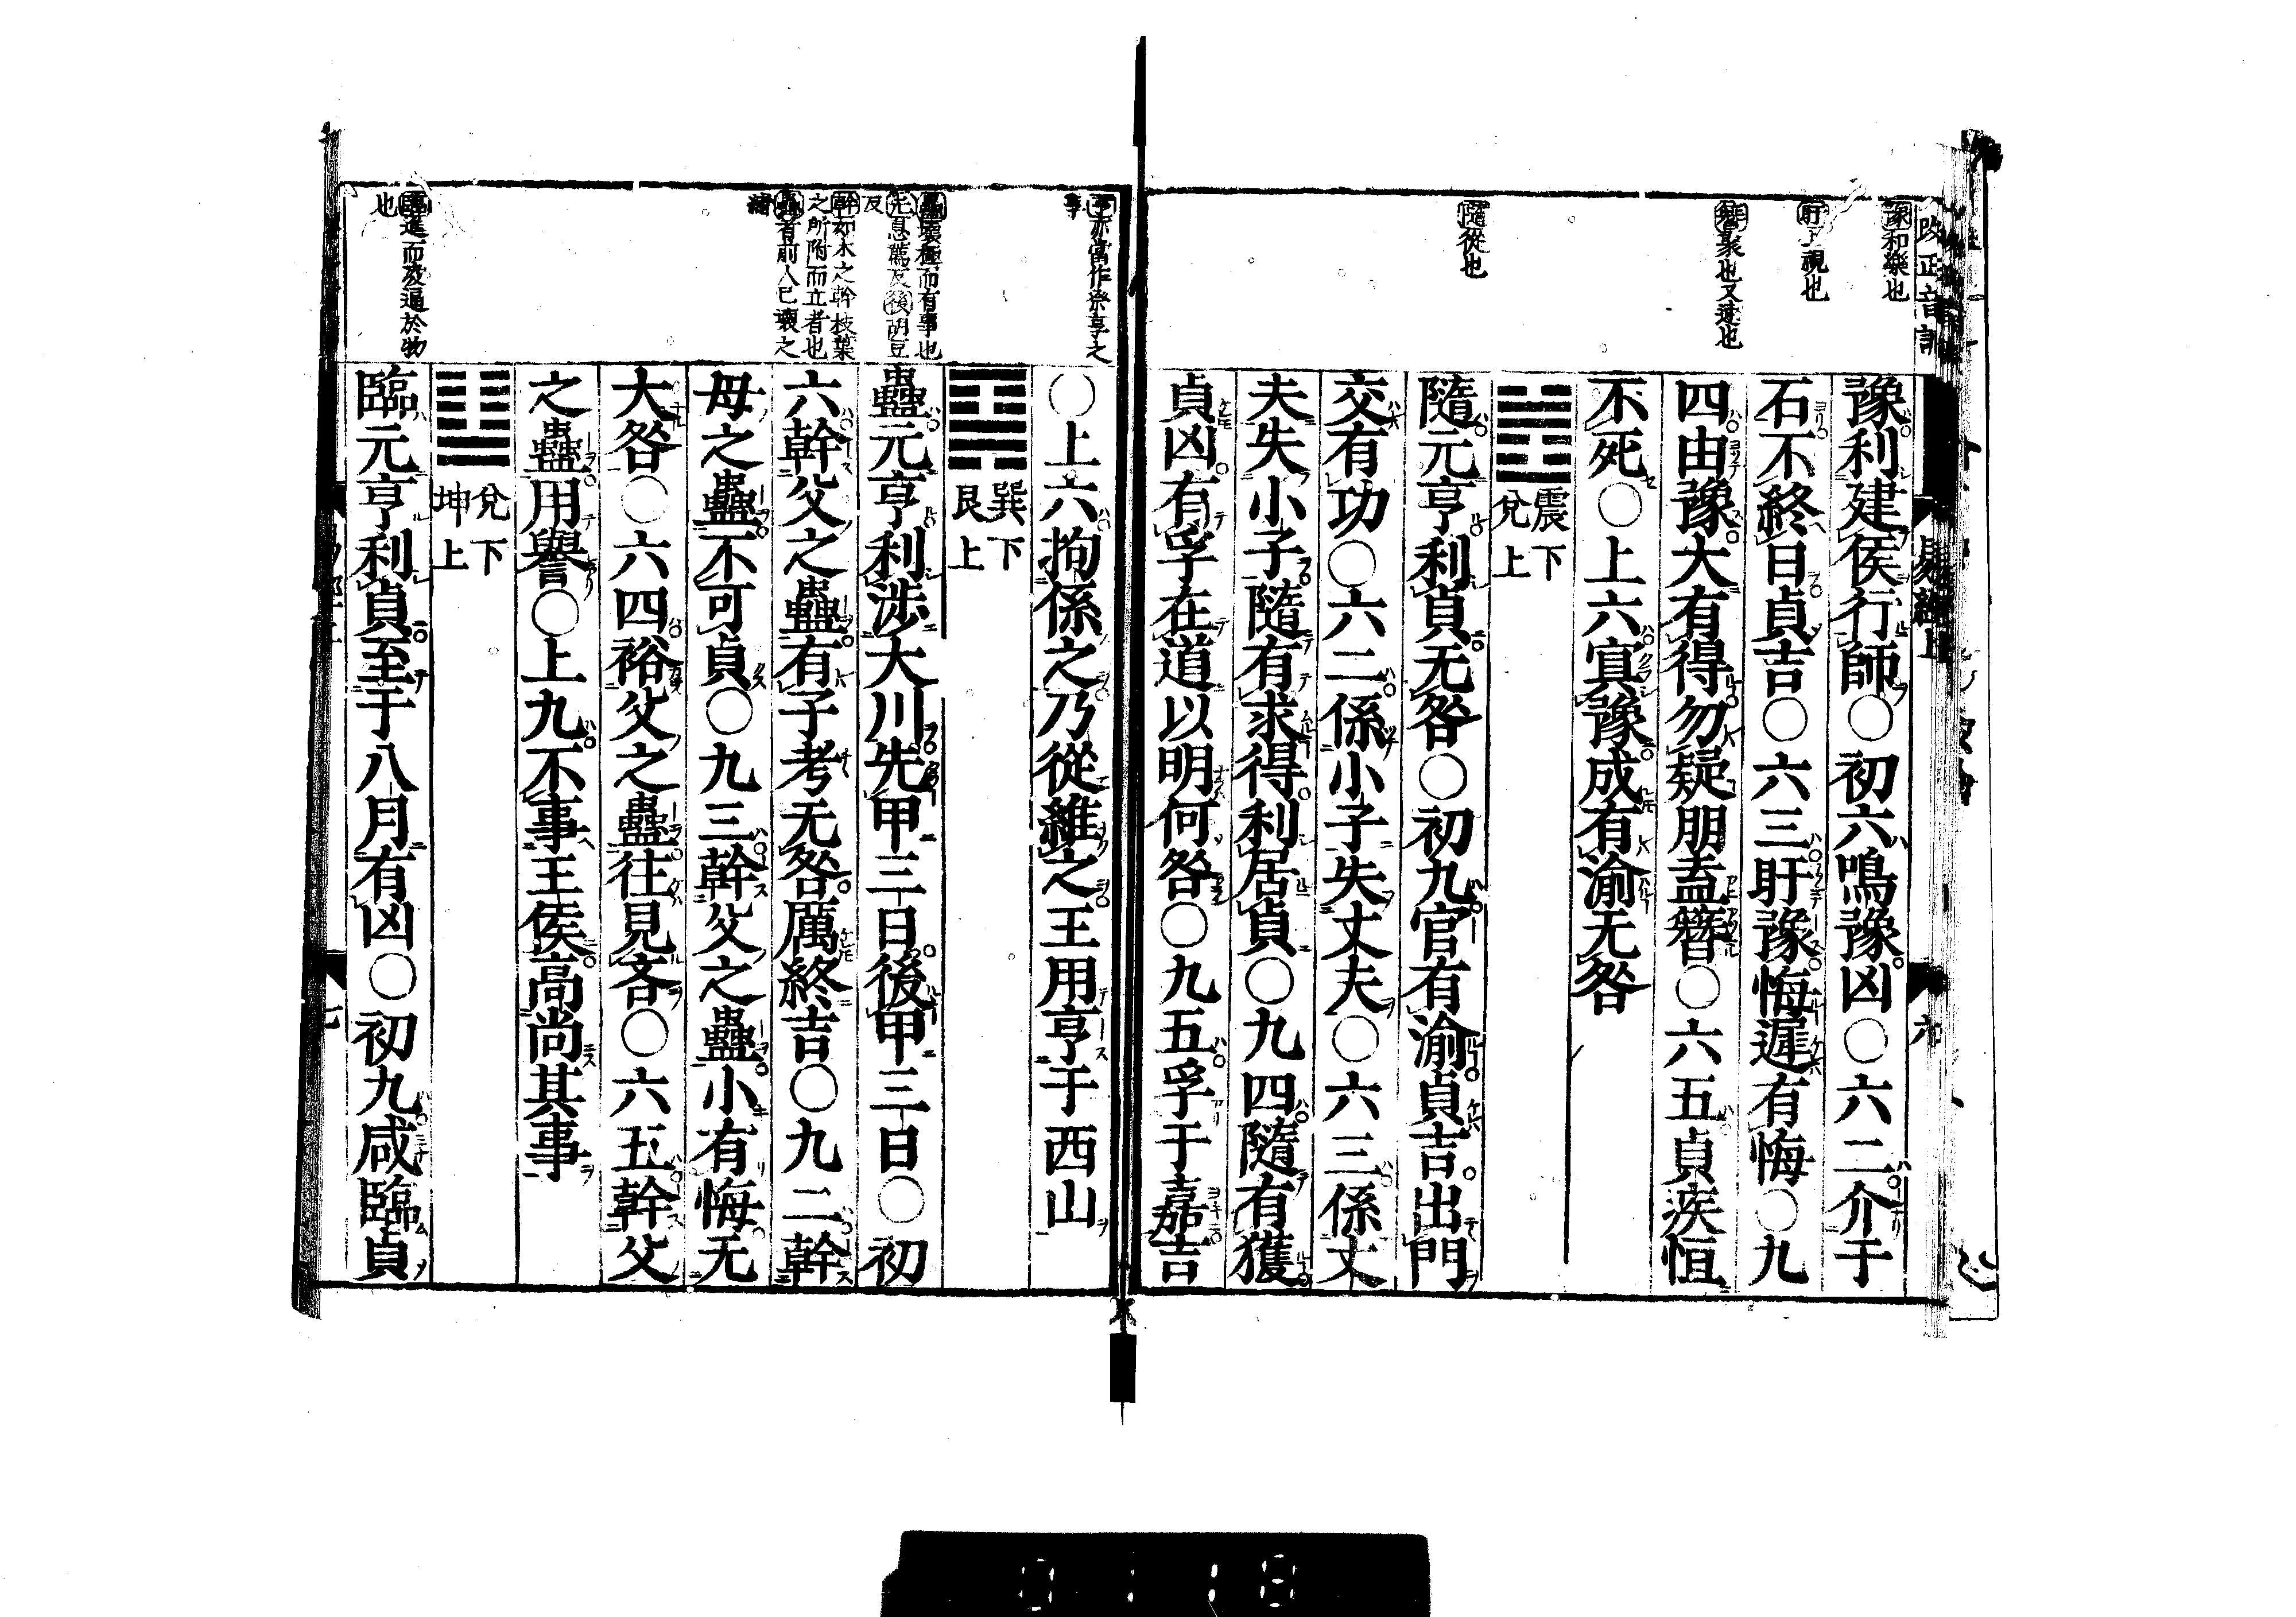 改正音訓
豫和樂也
盱上視也
簪聚也又速也
隨從也
豫利建侯行師○初六鳴豫凶○六二介于
石不終日貞吉○六三盱豫悔遲有悔○九
四由豫大有得勿疑朋盍簪○六五貞疾恒
不死○上六冥豫成有渝无咎
震下
兌上
隨元亨利貞无咎○初九官有渝貞吉出門
交有功○六二係小子失丈夫○六三係丈
夫失小子隨有求得利居貞○九四隨有獲
貞凶有孚在道以明何咎○九五孚于嘉吉
易經上
六
亨亦當作祭享之
享
蠱壞極而有事也
先息薦反後胡豆
反
幹如木之幹枝葉
之所附而立者也
蠱者前人已壞之
緒
臨進而凌逼於物
也
○上六拘係之乃從維之王用亨于西山
巽下
艮上
蠱元亨利涉大川先甲三日後甲三日○初
六幹父之蠱有子考无咎厲終吉○九二幹
母之蠱不可貞○九三幹父之蠱小有悔无
大咎○六四裕父之蠱往見吝○六五幹父
之蠱用譽○上九不事王侯高尚其事
兌下
坤上
臨元亨利貞至于八月有凶○初九咸臨貞
七
0118